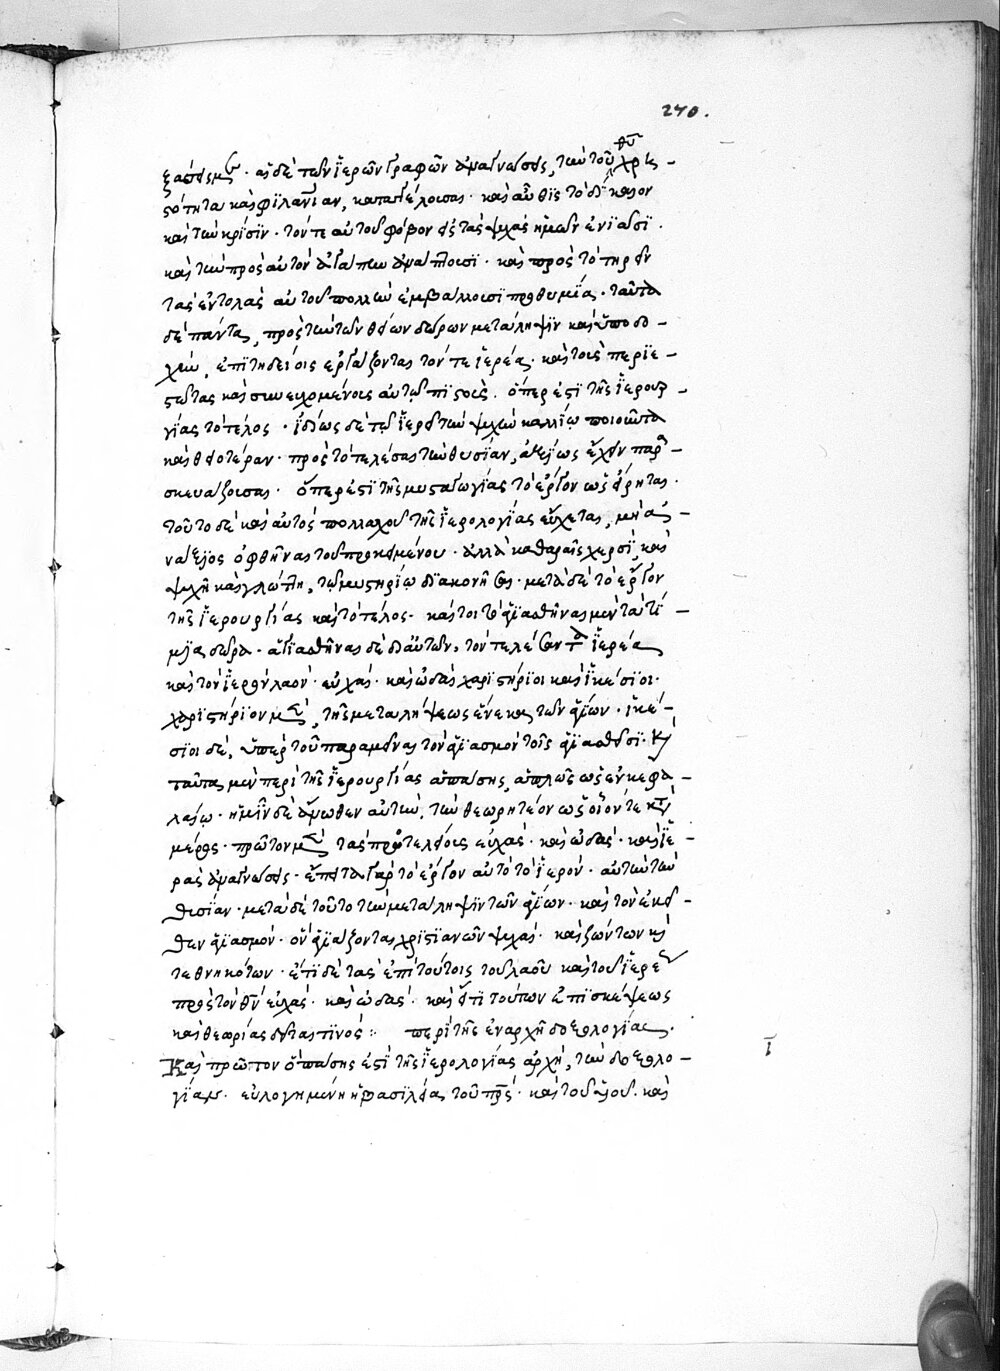 270.
ξασθαι μ· αἱ δὲ τῶν ἱερῶν γραφῶν ἀναγνώσεις, τὴν τοῦ θυ χρη-
στότητα καὶ φιλανίαν, καταγγέλουσαι· καὶ αὖθις τὸ δίκαιον
καὶ τὴν κρίσιν· τόν τε αὐτοῦ φόβον εἰς τὰς ψυχὰς ἡμῶν ἐνιᾶσι·
καὶ τὴν πρὸς αὐτὸν ἀγάπην ἀνάπτουσι· καὶ πρὸς τὸ τηρεῖν
τὰς ἐντολὰς αὐτοῦ πολλὴν ἐμβάλλουσι προθυμίαν· ταῦτα
δὲ πάντα, πρὸς τὴν τῶν θείων δώρων μετάληψιν καὶ ὑποδο-
χὴν, ἐπιτηδείους ἐργάζονται τόν τε ἱερέα· καὶ τοὺς περιε-
στῶτας καὶ συνευχομένους αὐτῷ πιστούς· ὅπερ ἐστὶ τῆς ἱερουρ-
γίας τὸ τέλος· ἰδίως δὲ τῷ ἱερεῖ τὴν ψυχὴν καλλίω ποιοῦντα
καὶ θειοτέραν· πρὸς τὸ τελέσαι τὴν θυσίαν, ἀξίως ἔχειν παρα-
σκευάζουσαι· ὅπερ ἐστὶ τῆς μυσταγωγίας τὸ ἔργον ὡς εἴρηται·
τοῦτο δὲ καὶ αὐτὸς πολλαχοῦ τῆς ἱερολογίας εὔχεται, μὴ ἀ-
νάξιος ὀφθῆναι τοῦ προκειμένου· ἀλλὰ καθαραῖς χερσὶ, καὶ
ψυχῇ καὶ γλώττῃ, τῷ μυστηρίῳ διακονῆσαι· μετὰ δὲ τὸ ἔργον
τῆς ἱερουργίας καὶ τὸ τέλος· καὶ τοι τὸ ἁγιασθῆναι μὲν τὰ τί-
μια δῶρα· ἁγιασθῆναι δὲ δι' αὐτῶν, τὸν τελέσαντα ἱερέα
καὶ τὸν ἱερὸν λαόν· εὐχαὶ· καὶ ᾠδαὶ χαριστήριοι καὶ ἱκέσιοι·
χαριστήριον μὲν, τῆς μεταλήψεως ἕνεκα τῶν ἁγίων· ἱκέ-
σιοι δὲ, ὑπὲρ τοῦ παραμεῖναι τὸν ἁγιασμὸν τοῖς ἁγιασθεῖσι· κ
ταῦτα μὲν περὶ τῆς ἱερουργίας ἁπάσης, ἁπλῶς ὡς ἐν κεφα-
λαίῳ· ἡμῖν δὲ ἄνωθεν αὐτὴν, τὴν θεωρητέον ὡς οἷόν τε κατὰ
μέρος· πρῶτον μὲν τὰς προτελείους εὐχάς· καὶ ᾠδάς· καὶ ἱε-
ρὰς ἀναγνώσεις· ἔπειτα γὰρ τὸ ἔργον αὐτὸ τὸ ἱερόν· αὐτὴν τὴν
θυσίαν· μετὰ δὲ τοῦτο τὴν μετάληψιν τῶν ἁγίων· καὶ τὸν ἐκεῖ-
θεν ἁγιασμόν· ὃν ἁγιάζονται χριστιανῶν ψυχαὶ· καὶ ζώντων κ
τεθνηκότων· ἔτι δὲ τὰς ἐπὶ τούτοις τοῦ λαοῦ καὶ τοῦ ἱερέως
πρὸς τὸν θν εὐχάς· καὶ ᾠδάς· καὶ εἴ τι τούτων ἐπισκέψεως
καὶ θεωρίας δεῖταί τινος : περὶ τῆς ἐν ἀρχῇ δοξολογίας·
Καὶ πρῶτον ὁ πάσης ἐστὶ τῆς ἱερολογίας ἀρχὴ, τὴν δοξολο- ι
γίαν· εὐλογημένη ἡ βασιλεία τοῦ πρς· καὶ τοῦ υἱοῦ· καὶ